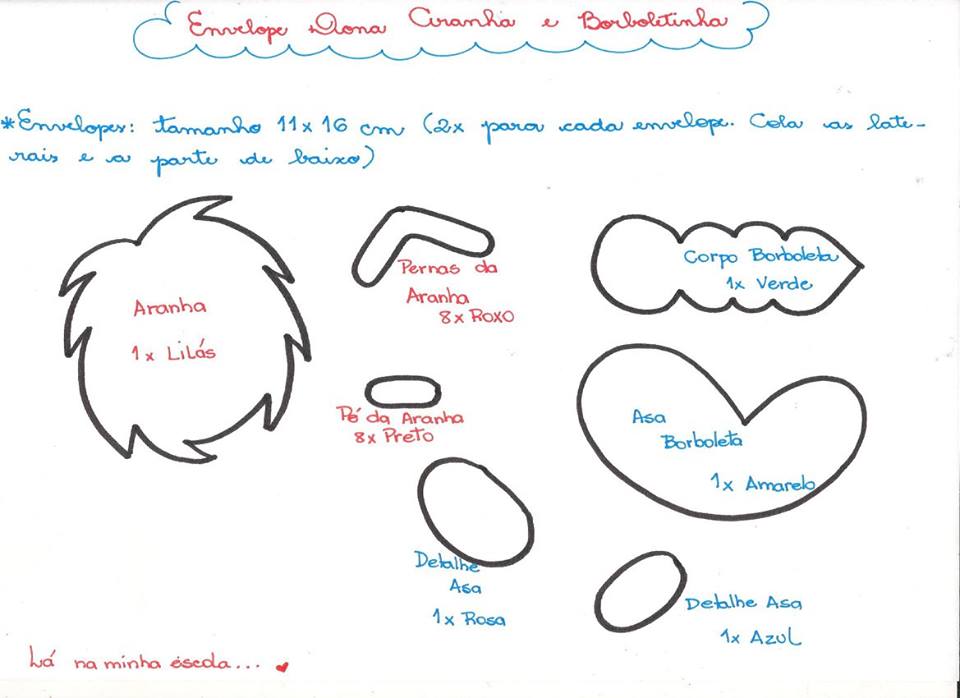 Envelope Dona Aranha e Borboletinha
*Envelopes: tamanho 11x16 cm (2x para cada envelope. Cola as late-
rais e a parte de baixo)
Aranha
1x Lilás
Pernas da
Aranha
8x Roxo
Corpo Borboleta
1x Verde
Pé da Aranha
8x Preto
Asa
Borboleta
1x Amarelo
Detalhe
Asa
1x Rosa
Detalhe Asa
1x Azul
Lá na minha escola... ♥